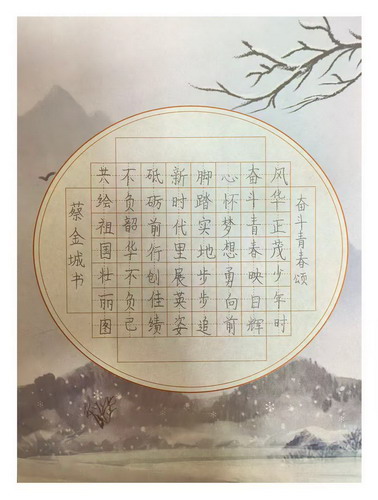 奋斗青春颂
风华正茂少年时
奋斗青春映日辉
心怀梦想勇向前
脚踏实地步步追
新时代里展英姿
砥砺前行创佳绩
不负韶华不负己
共绘祖国壮丽图
蔡金城书